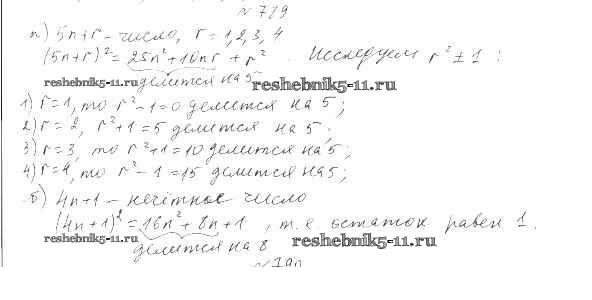 № 789
а) 5n+r - число, r = 1,2,3,4
(5n+r)² = 25n²+10nr + r². Исследуем r² ± 1 :
делится на 5
reshebnik5-11.ru reshebnik5-11.ru
1) r=1, то r²-1=0 делится на 5;
2) r=2, r²+1=5 делится на 5;
3) r=3, то r²+1=10 делится на 5;
4) r=4, то r²-1=15 делится на 5;
б) 4n+1 - нечётное число
(4n+1)² = 16n² + 8n+1, т.е. остаток равен 1.
делится на 8
reshebnik5-11.ru reshebnik5-11.ru